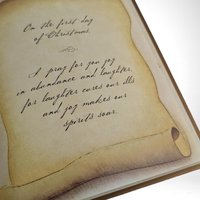 On the first day
of Christmas
I pray for you joy
in abundance and laughter,
for laughter cures our ills
and joy makes our
spirits soar.